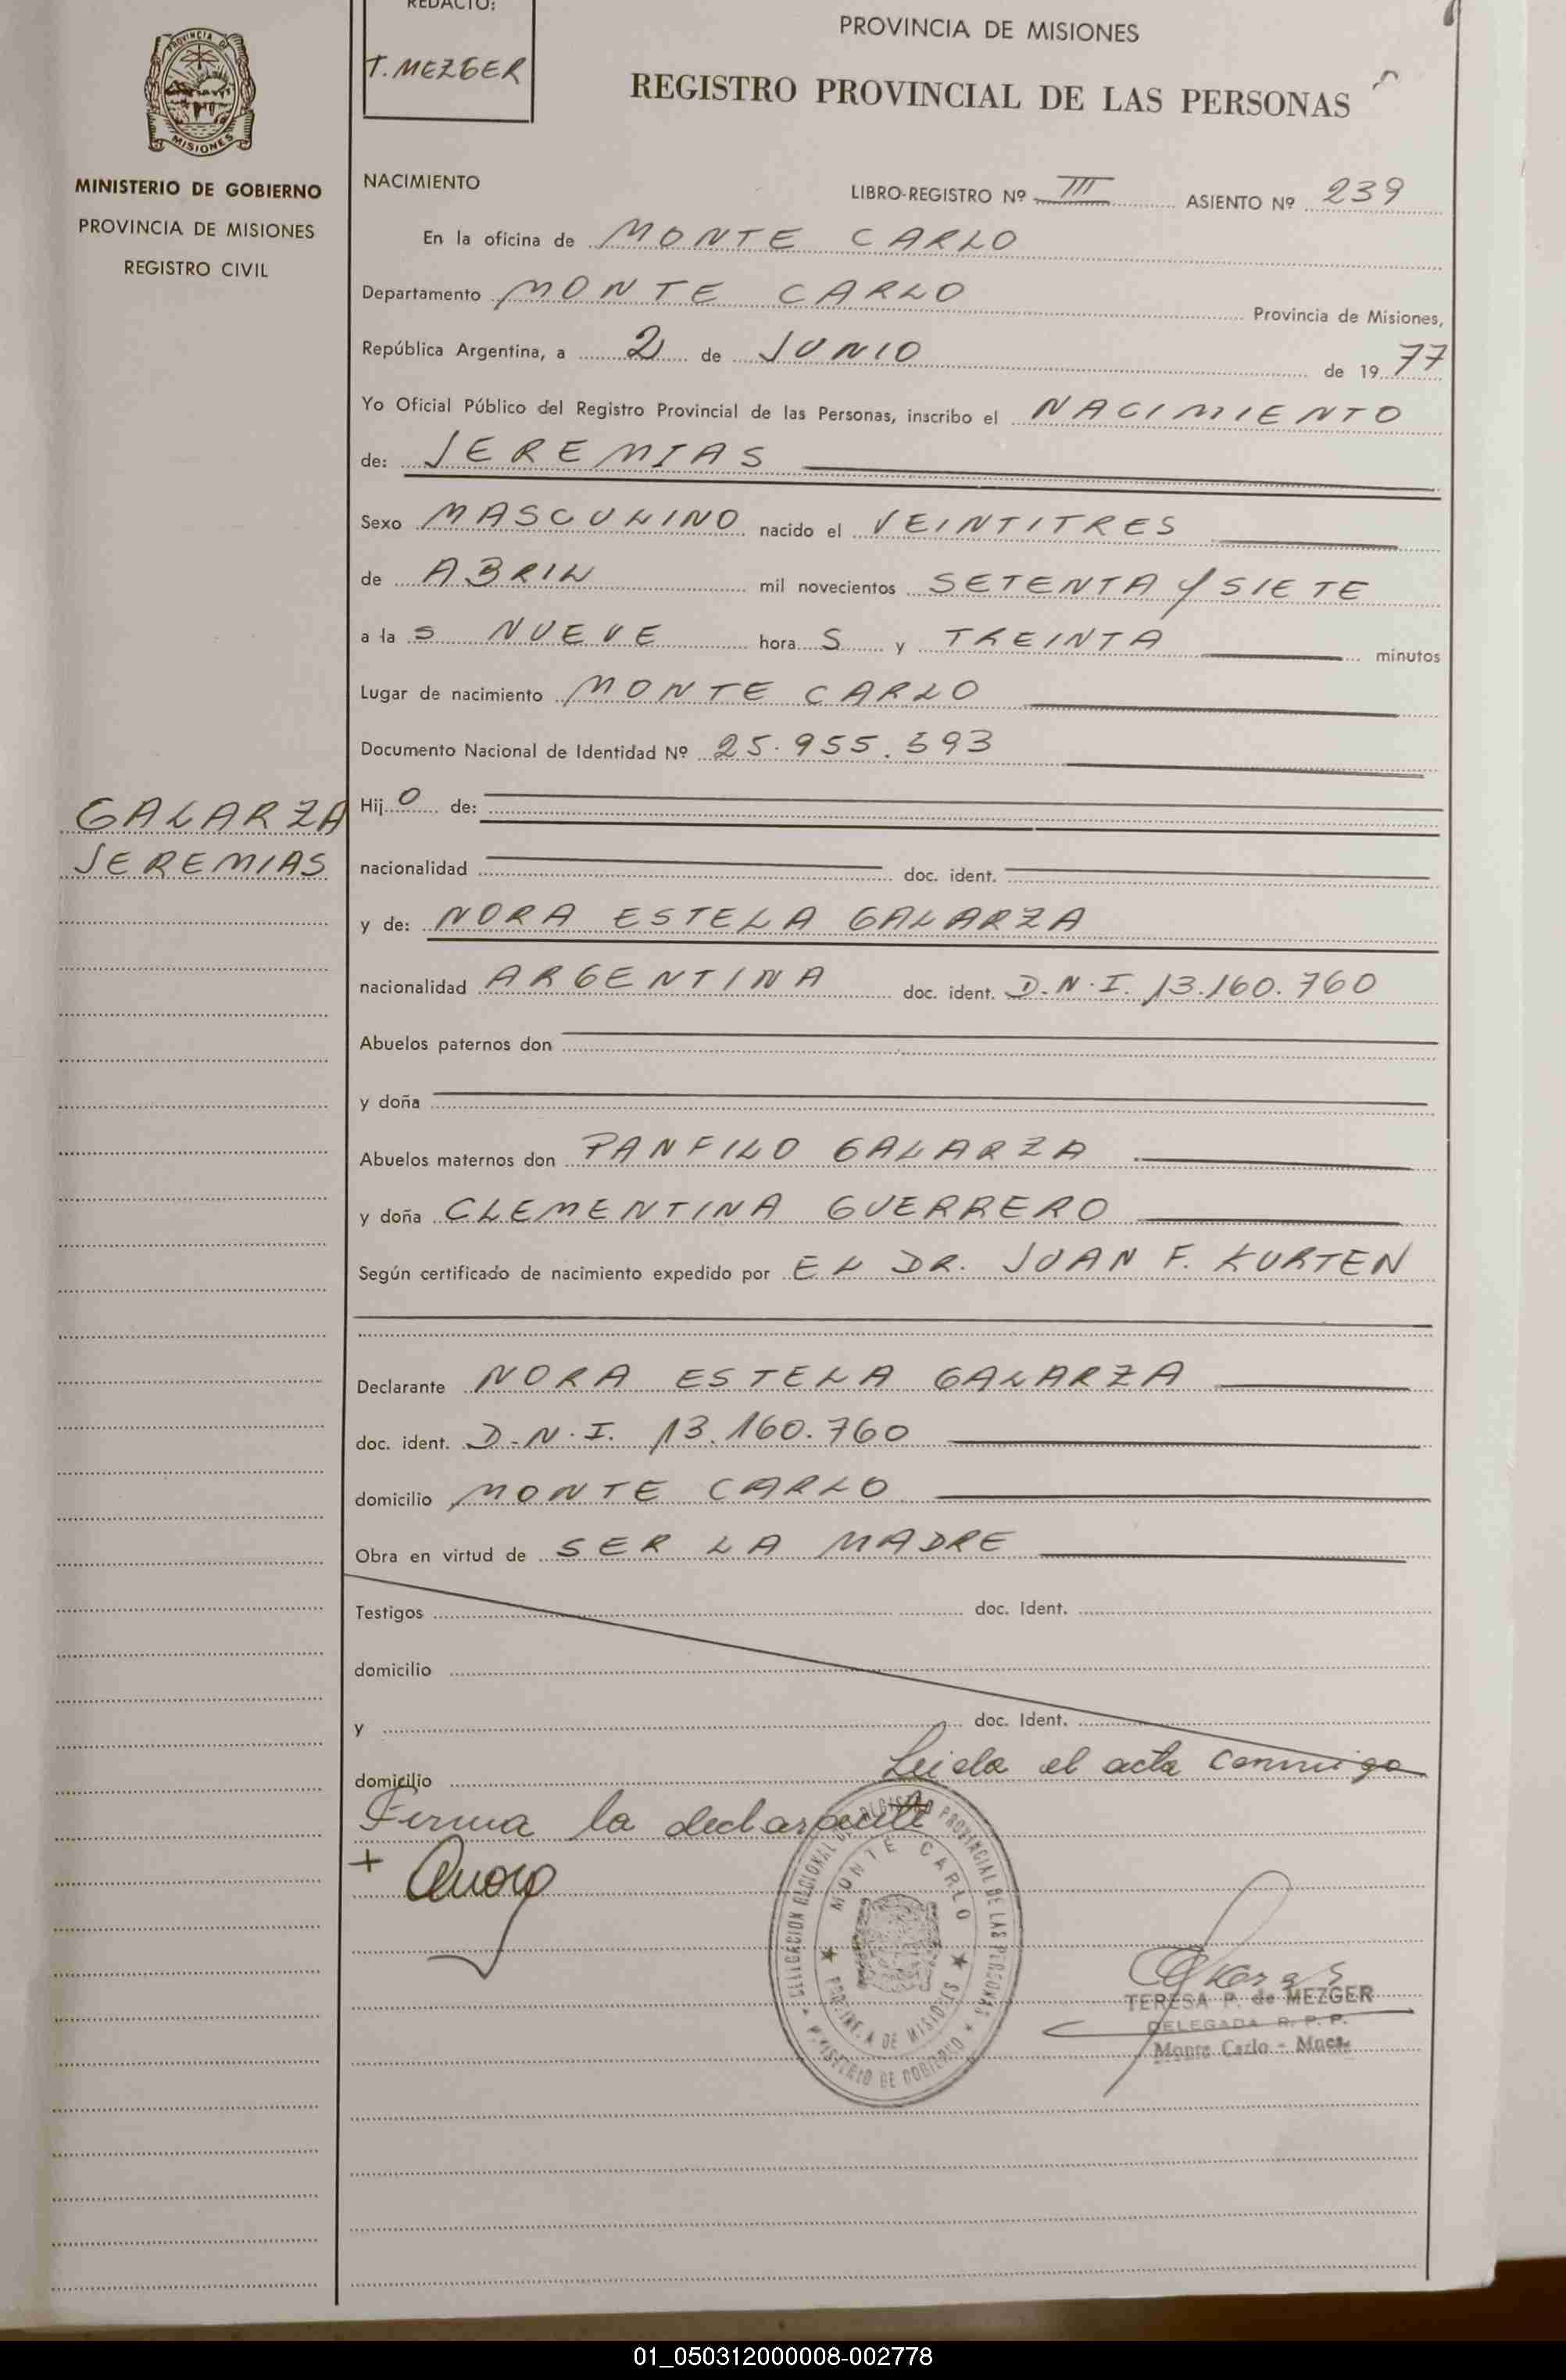 REDACTO:
T. MEZGER
PROVINCIA DE MISIONES
REGISTRO PROVINCIAL DE LAS PERSONAS
PROVINCIA DE
MISIONES
MINISTERIO DE GOBIERNO
PROVINCIA DE MISIONES
REGISTRO CIVIL
NACIMIENTO
LIBRO-REGISTRO Nº III ASIENTO Nº 239
En la oficina de MONTE CARLO
Departamento MONTE CARLO Provincia de Misiones,
República Argentina, a 2 de JUNIO de 1977
Yo Oficial Público del Registro Provincial de las Personas, inscribo el NACIMIENTO
de: JEREMIAS
Sexo MASCULINO nacido el VEINTITRES
de ABRIL mil novecientos SETENTA Y SIETE
a las NUEVE horaS y TREINTA minutos
Lugar de nacimiento MONTE CARLO
Documento Nacional de Identidad Nº 25.955.393
GALARZA
JEREMIAS
Hijo de:
nacionalidad doc. ident.
y de: NORA ESTELA GALARZA
nacionalidad ARGENTINA doc. ident. D.N.I. 13.160.760
Abuelos paternos don
y doña
Abuelos maternos don PANFILO GALARZA
y doña CLEMENTINA GUERRERO
Según certificado de nacimiento expedido por EL DR. JUAN F. KURTEN
Declarante NORA ESTELA GALARZA
doc. ident. D.N.I. 13.160.760
domicilio MONTE CARLO
Obra en virtud de SER LA MADRE
Testigos doc. Ident.
domicilio
y doc. Ident.
domicilio Leida el acta conmigo
Firma la declarante
+
DELEGACION REGIONAL DEL REGISTRO PROVINCIAL DE LAS PERSONAS
MINISTERIO DE GOBIERNO
MONTE CARLO
DE MISIONES
TERESA P. de MEZGER
DELEGADA R. P. P.
Monte Carlo - Mnes.
01_050312000008-002778